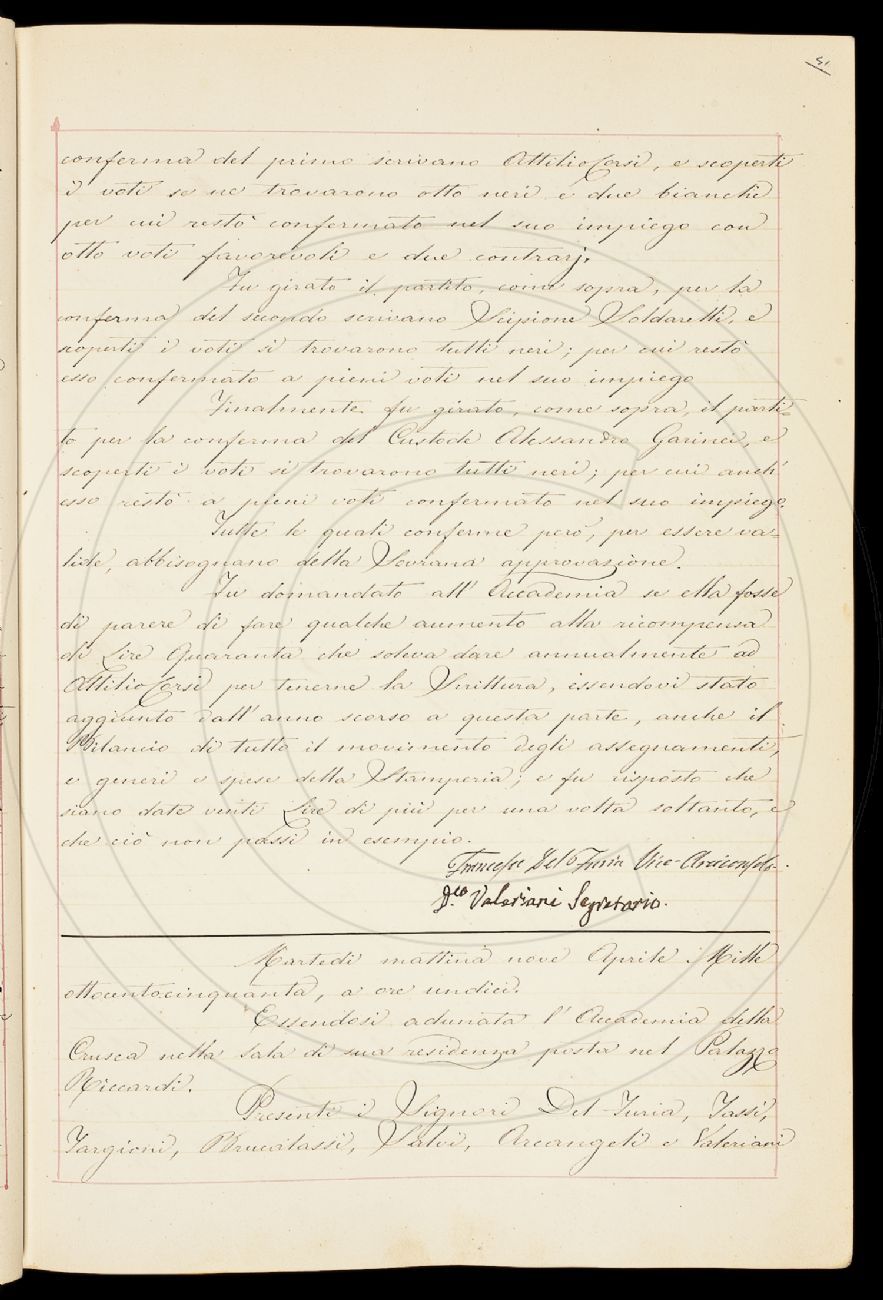 51
conferma del primo scrivano Attilio Corsi, e scoperti
i voti se ne trovarono otto neri e due bianchi
per cui restò confermato nel suo impiego con
otto voti favorevoli e due contrarj.
Fu girato il partito, come sopra, per la
conferma del secondo scrivano Scipione Soldarelli, e
scoperti i voti si trovarono tutti neri; per cui restò
esso confermato a pieni voti nel suo impiego
Finalmente fu girato, come sopra, il parti-
to per la conferma del Custode Alessandro Garinei, e
scoperti i voti si trovarono tutti neri; per cui anch'
esso restò a pieni voti confermato nel suo impiego.
Tutte le quali conferme però, per essere va-
lide, abbisognano della Sovrana approvazione.
Fu domandato all' Accademia se ella fosse
di parere di fare qualche aumento alla ricompensa
di Lire Quaranta che soleva dare annualmente ad
Attilio Corsi per tenerne la Scrittura, essendovi stato
aggiunto dall' anno scorso a questa parte, anche il
Bilancio di tutto il movimento degli assegnamenti,
e generi e spese della Stamperia; e fu risposto che
siano date venti Lire di più per una volta soltanto, e
che ciò non passi in esempio.
Francesco Del Furia Vice-Arciconsolo.
D.co Valeriani Segretario.
Martedì mattina nove Aprile Mille
ottocentocinquanta, a ore undici.
Essendosi adunata l' Accademia della
Crusca nella sala di sua residenza posta nel Palazzo
Riccardi.
Presenti i Signori Del-Furia, Tassi,
Targioni, Brucalassi, Salvi, Arcangeli e Valeriani